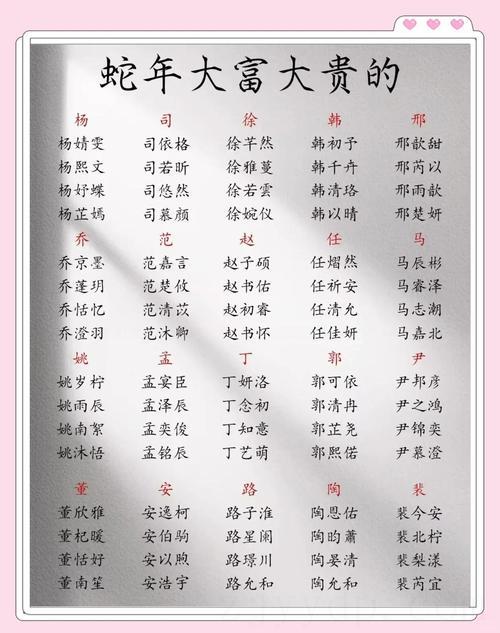 蛇年大富大贵的
杨 司 徐 韩 邢
杨婧雯 司依格 徐芊然 韩初予 邢歆甜
杨熙文 司若昕 徐雅蔓 韩千卉 邢芮以
杨妤蝶 司悠然 徐若雲 韩清珞 邢雨歆
杨芷嫣 司慕颜 徐婉仪 韩以晴 邢楚妍
乔 范 赵 任 马
乔京墨 范嘉言 赵子硕 任熠然 马辰彬
乔蓬玥 范楚攸 赵书佑 任祈安 马睿泽
乔恬忆 范清苡 赵初睿 任清允 马志潮
乔澄羽 范沐卿 赵书怀 任佳妍 马嘉北
姚 孟 丁 郭 尹
姚岁柠 孟宴臣 丁妍洛 郭可依 尹邦彦
姚雨辰 孟泽辰 丁念初 郭清冉 尹之鸿
姚南絮 孟奕俊 丁知意 郭芷尧 尹锦奕
姚沐悟 孟铭辰 丁艺萌 郭熙偌 尹慕澄
董 安 路 陶 裴
董欣雅 安逸柯 路子淮 陶恩佑 裴今安
董杞暖 安伯驹 路星阑 陶昀萧 裴北柠
董恬好 安以煦 路璟川 陶晏清 裴梨漾
董南笙 安浩宇 路允和 陶允和 裴芮宜